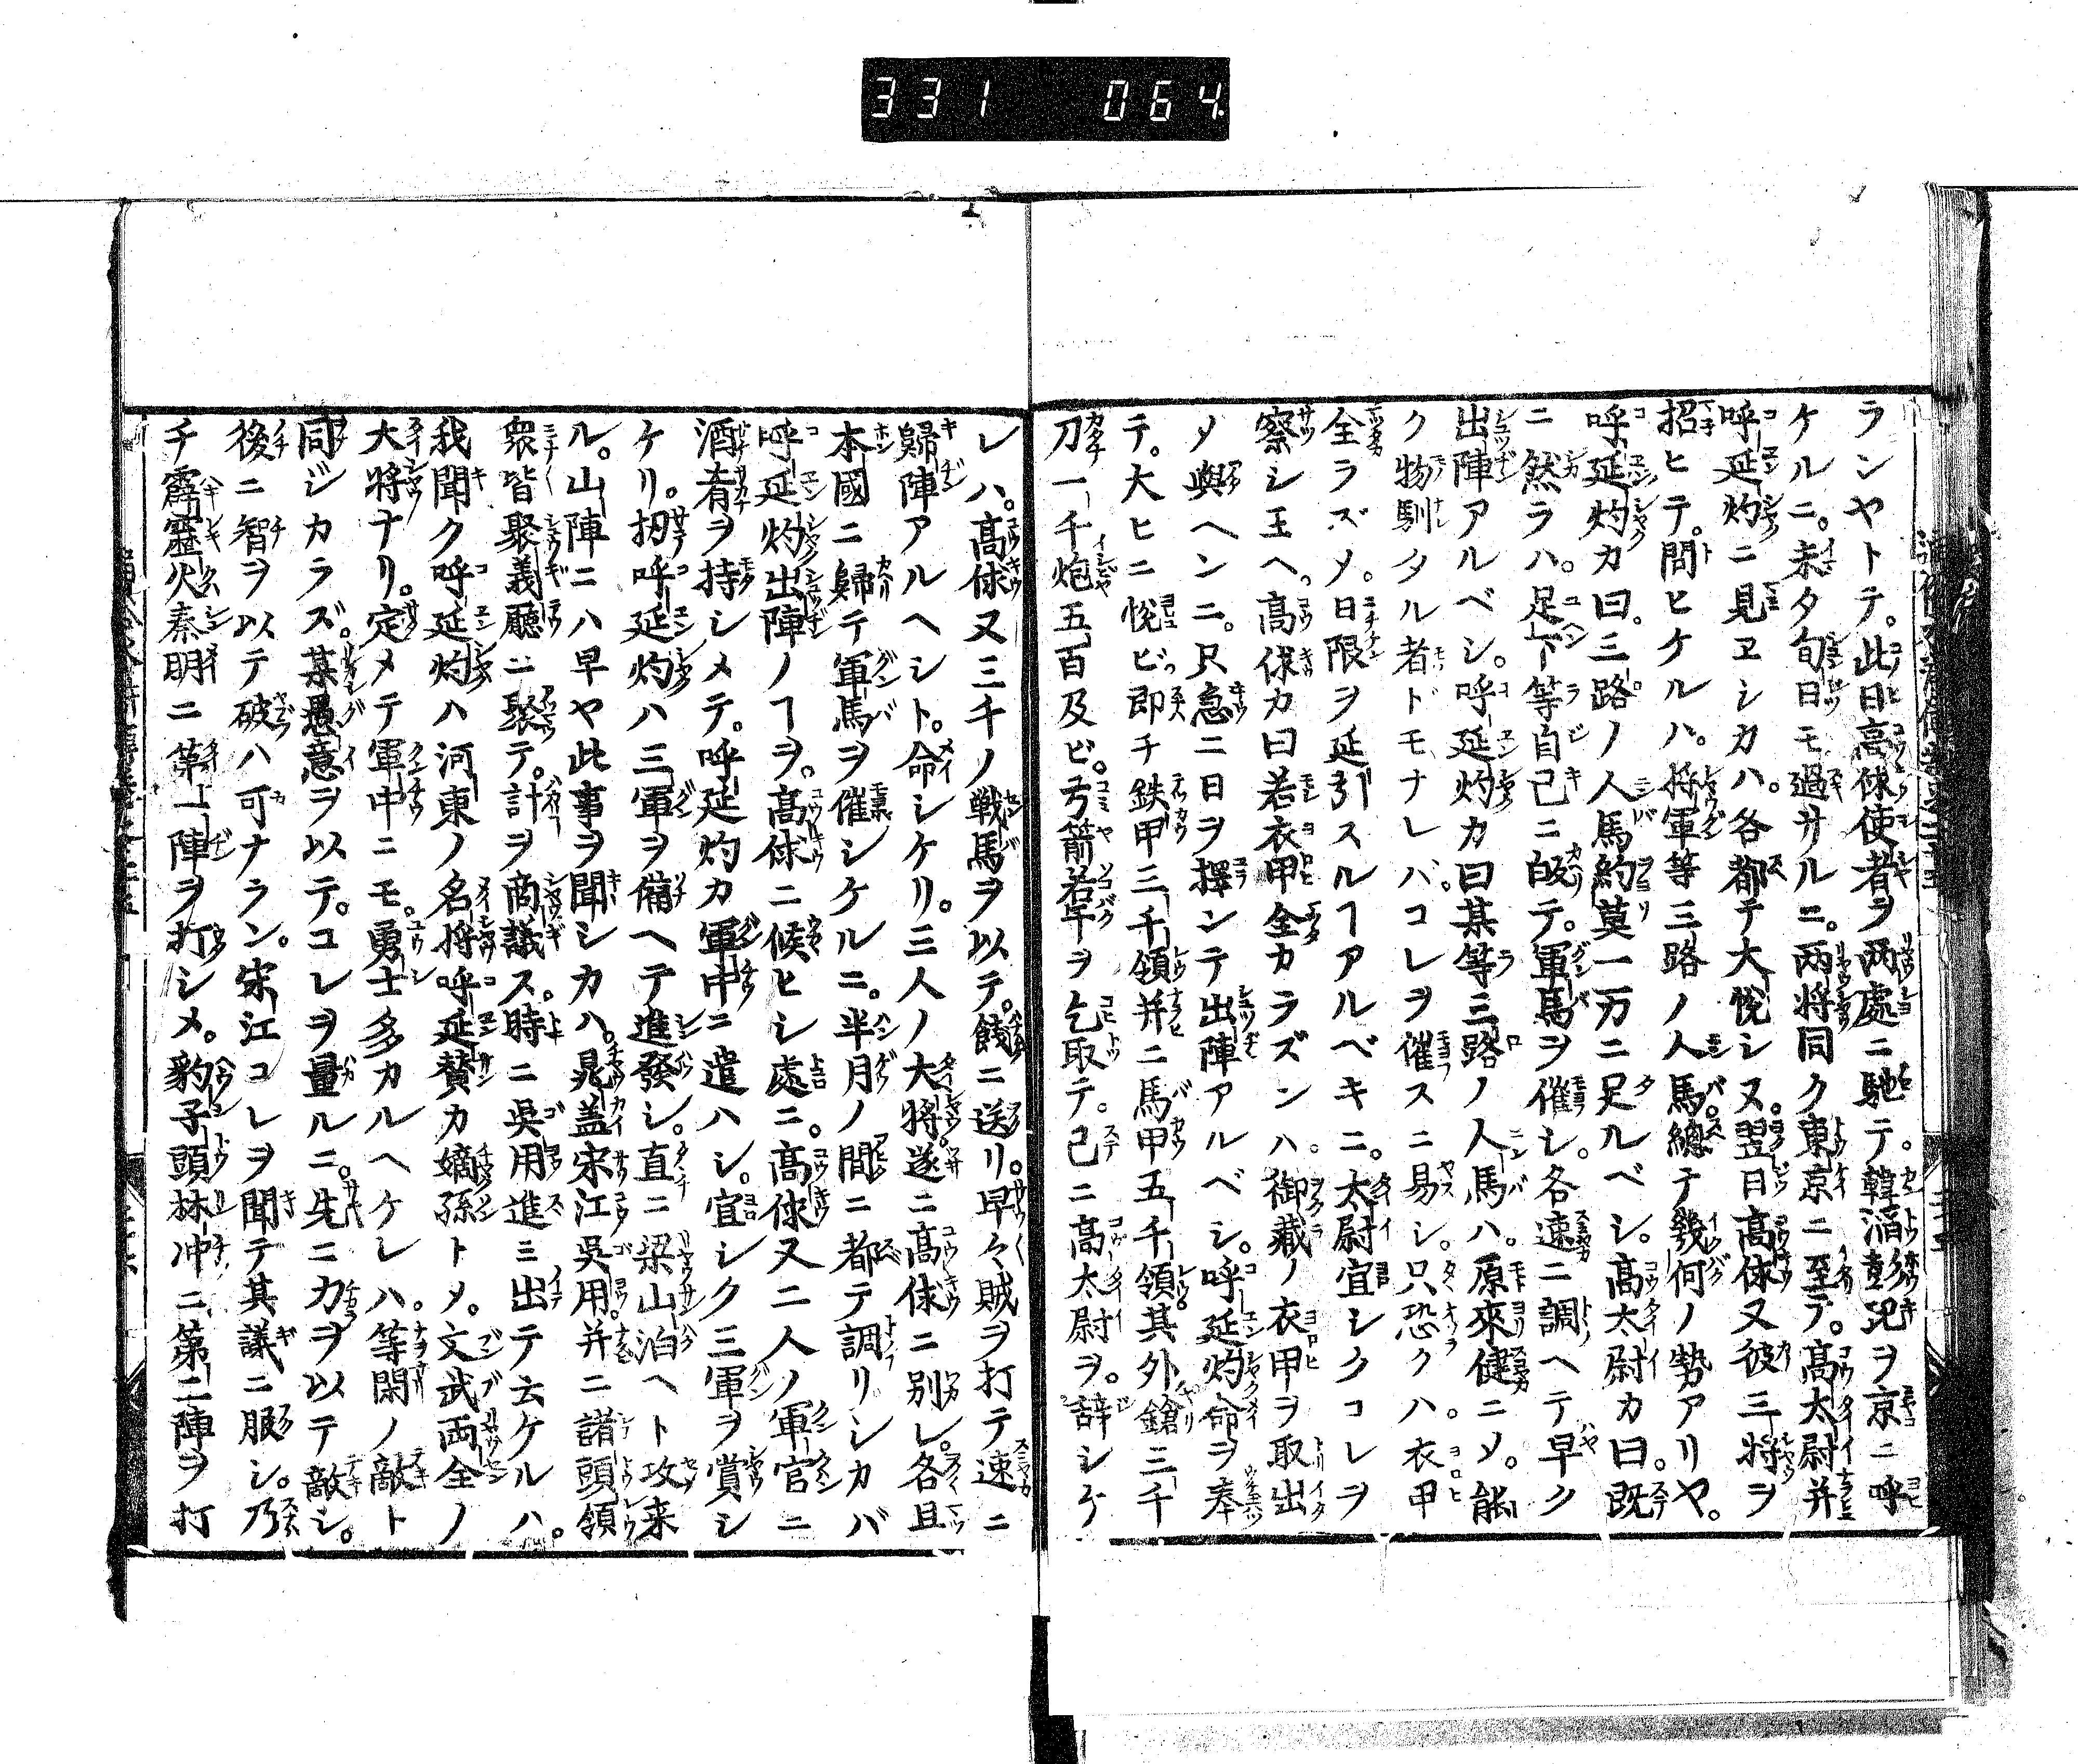 331 064
ランヤトテ。此日高俅使者ヲ两處ニ馳テ。韓滔彭玘ヲ京ニ呼
ケルニ。未タ旬日モ過サルニ。两将同ク東京ニ至テ。高太尉并
呼延灼ニ見ヱシカハ。各都テ大悅シヌ。翌日高俅又彼三将ヲ
招ヒテ。問ヒケルハ。将軍等三路ノ人馬。總テ幾何ノ勢アリヤ。
呼延灼カ曰。三路ノ人馬約莫一万ニ足ルベシ。高太尉カ曰。既
ニ然ラハ。足下等自己ニ皈テ。軍馬ヲ催シ。各速ニ調ヘテ早ク
出陣アルベシ。呼延灼カ曰某等三路ノ人馬ハ。原來健ニメ。能
ク物馴タル者ドモナレバ。コレヲ催スニ易シ。只恐クハ。衣甲
全ラズメ。日限ヲ延引スルヿアルベキニ。太尉宜シクコレヲ
察シ玉ヘ。高俅カ曰若衣甲全カラズンハ。御藏ノ衣甲ヲ取出
メ與ヘンニ。只急ニ日ヲ擇ンテ出陣アルベシ。呼延灼命ヲ奉
テ。大ヒニ悅ビ即チ鉄甲三千領并ニ馬甲五千領其外鎗三千
刀一千炮五百及ビ。弓箭若干ヲ乞取テ。已ニ高太尉ヲ。辞シケ
レハ。高俅又三千ノ戦馬ヲ以テ。餞ニ送リ。早々賊ヲ打テ速ニ
歸陣アルヘシト。命シケリ。三人ノ大将遂ニ高俅ニ別レ。各且
本國ニ歸テ軍馬ヲ催シケルニ。半月ノ間ニ都テ調リシカバ
呼延灼出陣ノヿヲ。高俅ニ候ヒシ處ニ。高俅又二人ノ軍官ニ
酒肴ヲ持シメテ。呼延灼カ軍中ニ遣ハシ。宜シク三軍ヲ賞シ
ケリ。扨呼延灼ハ三軍ヲ備ヘテ進發シ。直ニ梁山泊ヘト攻来
ル。山陣ニハ早ヤ此事ヲ聞シカハ。晁盖宋江吳用。并ニ諸頭領
衆皆聚義廳ニ聚テ。計ヲ商議ス。時ニ吳用進ミ出テ云ケルハ。
我聞ク呼延灼ハ河東ノ名将呼延賛カ嫡孫トメ。文武両全ノ
大将ナリ。定メテ軍中ニモ。勇士多カルヘケレハ。等閑ノ敵ト
同ジカラズ。某愚意ヲ以テ。コレヲ量ルニ。先ニカヲ以テ敵シ。
後ニ智ヲ以テ破ハ可ナラン。宋江コレヲ聞テ其議ニ服シ。乃
チ霹靂火秦明ニ第一陣ヲ打シメ。豹子頭林冲ニ第二陣ヲ打